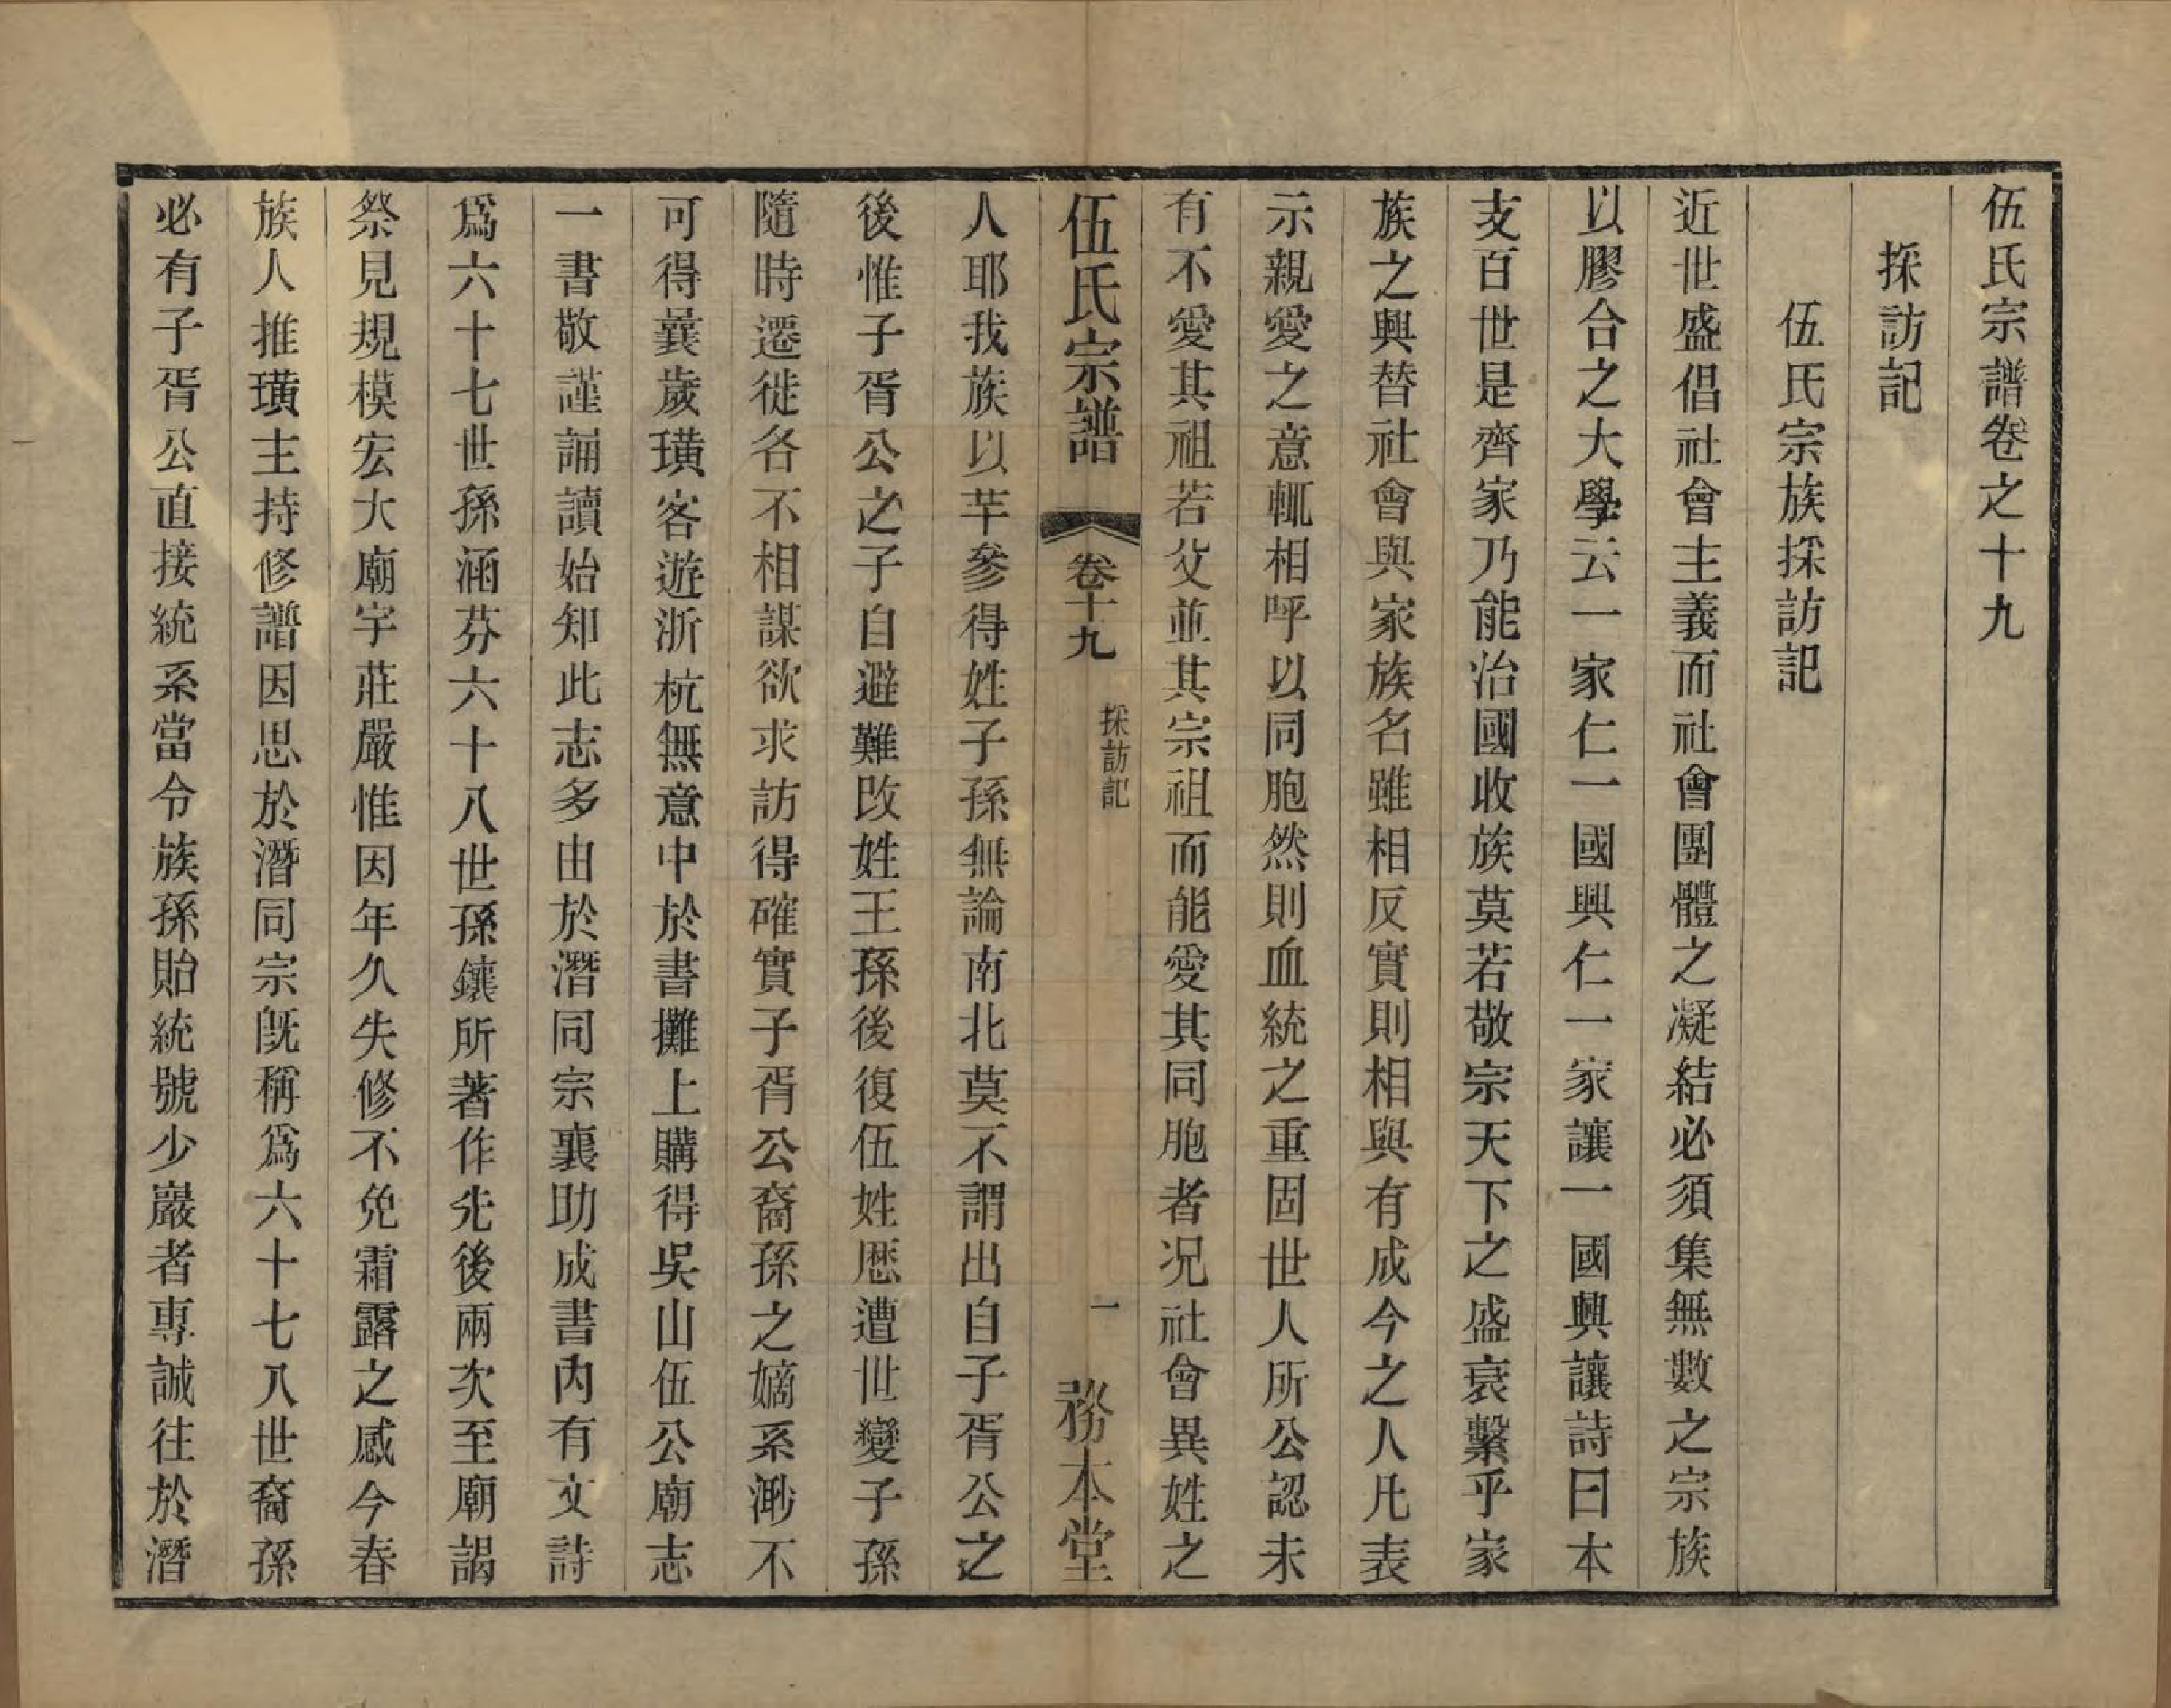 伍氏宗譜卷之十九
採訪記
伍氏宗族採訪記
近世盛倡社會主義而社會團體之凝結必須集無數之宗族
以膠合之大學云一家仁一國興仁一家讓一國興讓詩曰本
支百世是齊家乃能治國收族莫若敬宗天下之盛衰繫乎家
族之興替社會與家族名雖相反實則相與有成今之人凡表
示親愛之意輒相呼以同胞然則血統之重固世人所公認未
有不愛其祖若父並其宗祖而能愛其同胞者況社會異姓之
伍氏宗譜 卷十九 採訪記 一 務本堂
人耶我族以芊參得姓子孫無論南北莫不謂出自子胥公之
後惟子胥公之子自避難改姓王孫後復伍姓歷遭世變子孫
隨時遷徙各不相謀欲求訪得確實子胥公裔孫之嫡系渺不
可得曩歲璜客遊浙杭無意中於書攤上購得吳山伍公廟志
一書敬謹誦讀始知此志多由於潛同宗襄助成書內有文詩
爲六十七世孫涵芬六十八世孫鑲所著作先後兩次至廟謁
祭見規模宏大廟宇莊嚴惟因年久失修不免霜露之感今春
族人推璜主持修譜因思於潛同宗旣稱爲六十七八世裔孫
必有子胥公直接統系當令族孫貽統號少巖者專誠往於潛